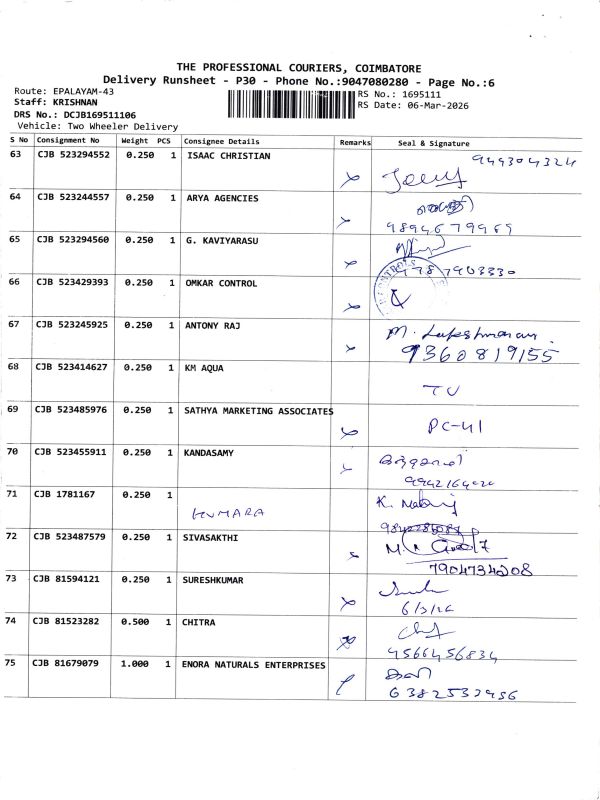 THE PROFESSIONAL COURIERS, COIMBATORE
Delivery Runsheet - P30 - Phone No.:9047080280 - Page No.:6
Route: EPALAYAM-43
RS No.: 1695111
Staff: KRISHNAN
RS Date: 06-Mar-2026
DRS No.: DCJB169511106
Vehicle: Two Wheeler Delivery
S No Consignment No Weight PCS Consignee Details Remarks Seal & Signature
63 CJB 523294552 0.250 1 ISAAC CHRISTIAN
64 CJB 523244557 0.250 1 ARYA AGENCIES
9894679969
65 CJB 523294560 0.250 1 G. KAVIYARASU
66 CJB 523429393 0.250 1 OMKAR CONTROL
67 CJB 523245925 0.250 1 ANTONY RAJ M. Lakshmanan
9360819155
68 CJB 523414627 0.250 1 KM AQUA
69 CJB 523485976 0.250 1 SATHYA MARKETING ASSOCIATES PC-41
70 CJB 523455911 0.250 1 KANDASAMY
71 CJB 1781167 0.250 1 KUMARA K.
72 CJB 523487579 0.250 1 SIVASAKTHI
7904734208
73 CJB 81594121 0.250 1 SURESHKUMAR
6/3/26
74 CJB 81523282 0.500 1 CHITRA
9566456834
75 CJB 81679079 1.000 1 ENORA NATURALS ENTERPRISES
6382532956